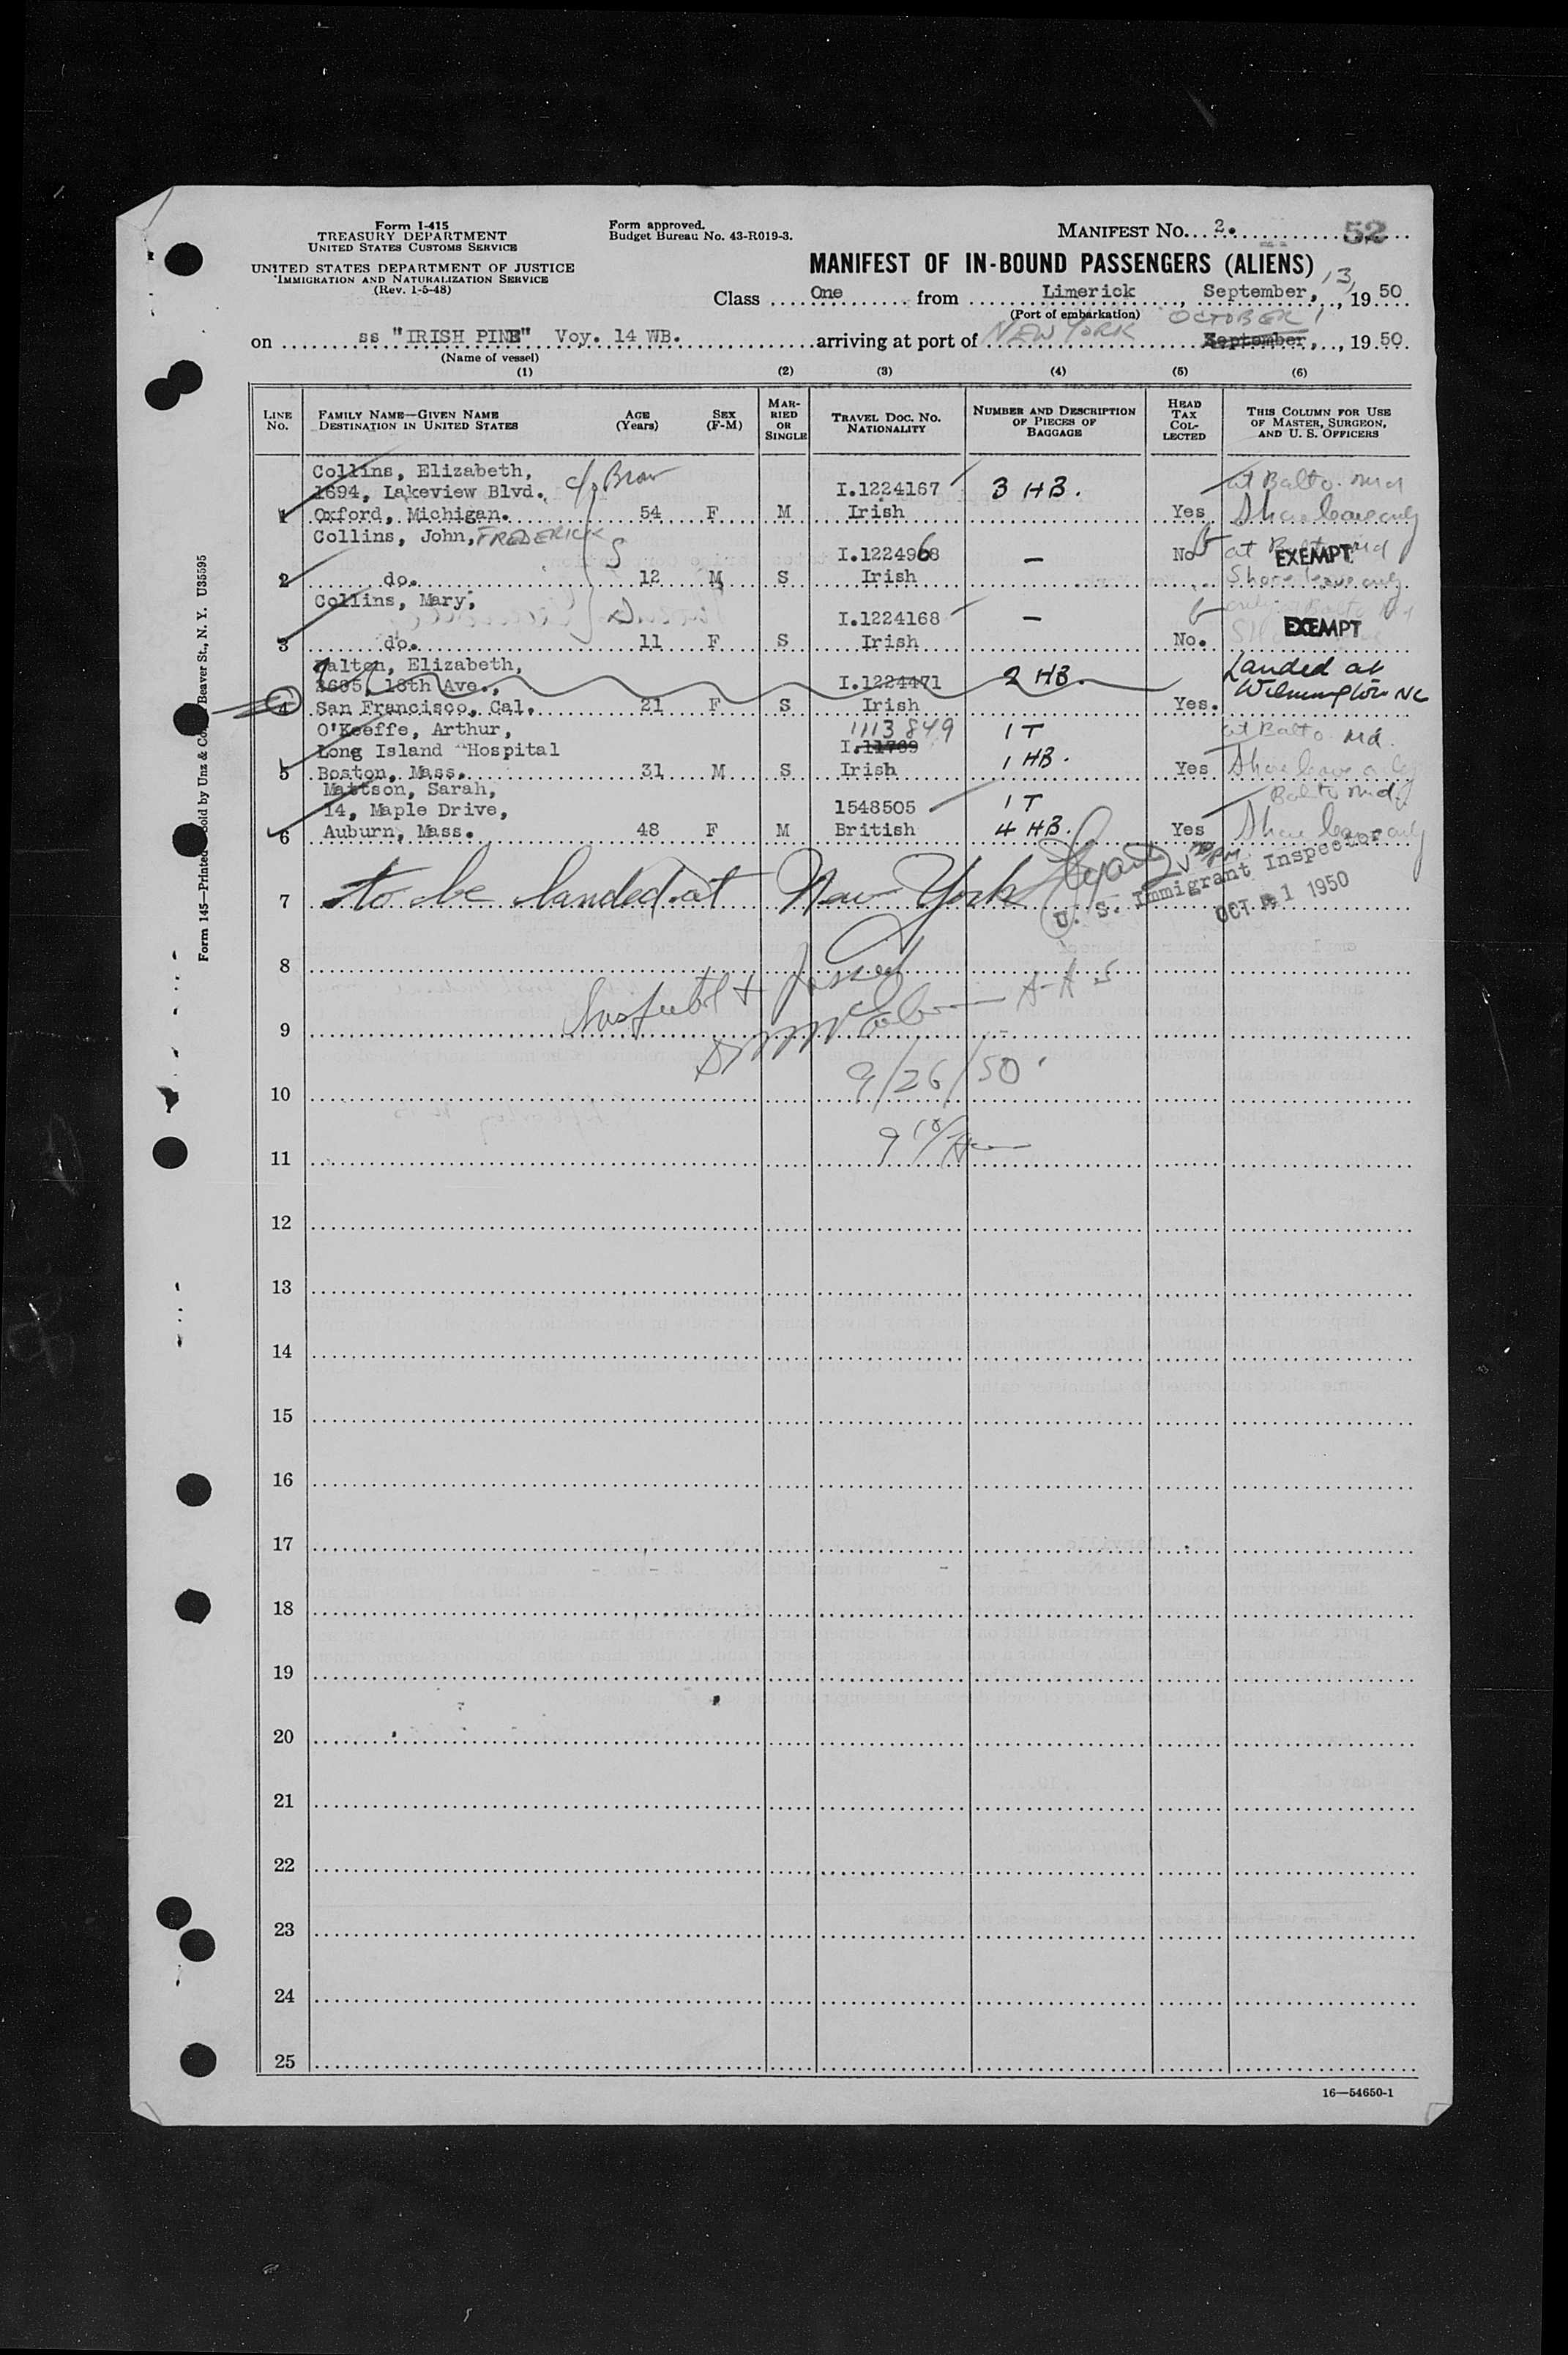 Form I-415
TREASURY DEPARTMENT
UNITED STATES CUSTOMS SERVICE
UNITED STATES DEPARTMENT OF JUSTICE
IMMIGRATION AND NATURALIZATION SERVICE
(Rev. 1-5-48)
Form approved.
Budget Bureau No. 43-R019-3.
MANIFEST No. 2. 52
MANIFEST OF IN-BOUND PASSENGERS (ALIENS)
Class One from Limerick, September, 13, 1950
(Port of embarkation)
OCTOBER 1
on ss "IRISH PINE" Voy. 14 WB. arriving at port of NEW YORK September, 1950
(Name of vessel)
(1) (2) (3) (4) (5) (6)
LINE No.
FAMILY NAME—GIVEN NAME
DESTINATION IN UNITED STATES
AGE (Years)
SEX (F-M)
MARRIED OR SINGLE
TRAVEL DOC. NO. NATIONALITY
NUMBER AND DESCRIPTION OF PIECES OF BAGGAGE
HEAD TAX COLLECTED
THIS COLUMN FOR USE OF MASTER, SURGEON, AND U. S. OFFICERS
Collins, Elizabeth, at Balto. Md
1694, Lakeview Blvd. c/o I.1224167 3 HB.
1 Oxford, Michigan. 54 F M Irish Yes Shore leave only
Collins, John, FREDERICK S
I.1224968 — No at Balto Md EXEMPT
2 do. 12 M S Irish Shore leave only
Collins, Mary, D
I.1224168 — EXEMPT
3 do. 11 F S Irish No.
Dalton, Elizabeth, Landed at
2695, 18th Ave., I.1224471 2 HB. Wilmington NC
4 San Francisco, Cal. 21 F S Irish Yes.
O'Keeffe, Arthur, 1113849 1 T at Balto Md.
Long Island Hospital I.11789 1 HB.
5 Boston, Mass. 31 M S Irish Yes Shore leave only
Mattson, Sarah, 1 T Balto Md.
14, Maple Drive, 1548505
6 Auburn, Mass. 48 F M British 4 HB. Yes Shore leave only
7 to be landed at New York
U. S. Immigrant Inspector
OCT 1 1950
8
Inspected & passed
9
9/26/50
10
11
12
13
14
15
16
17
18
19
20
21
22
23
24
25
16—54650-1
Form 145—Printed Sold by Unz & Co. Beaver St., N. Y. U35595